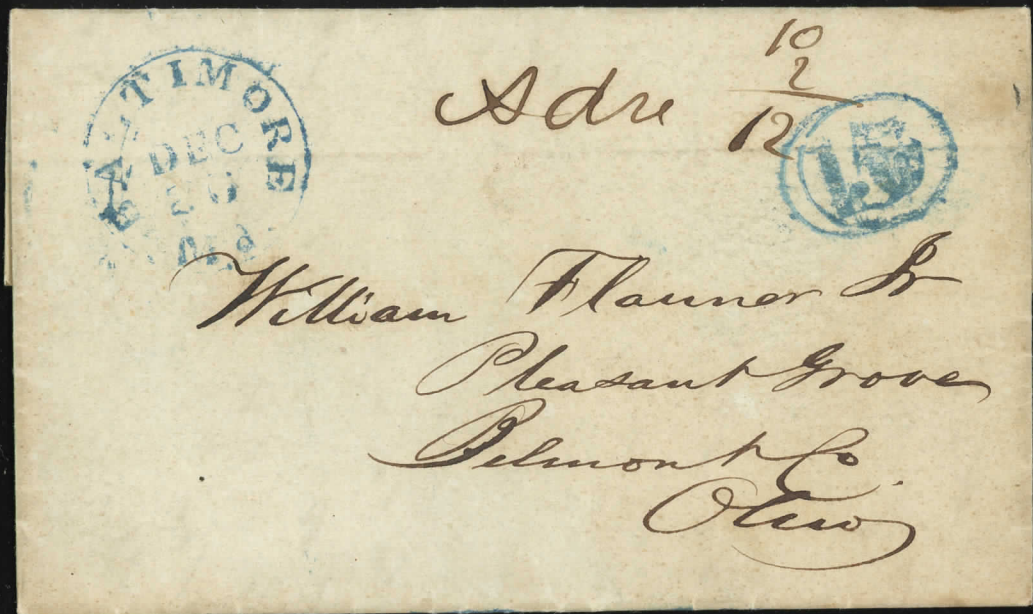 BALTIMORE
DEC
Md
Adve
10
2
12
15
William Flanner Jr
Pleasant Grove
Belmont Co.
Ohio